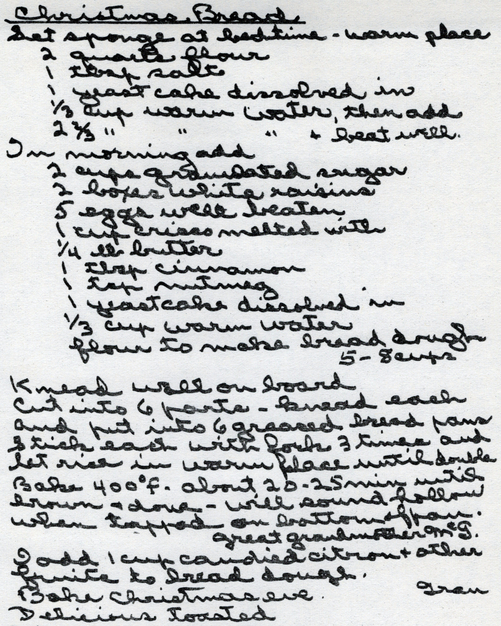 Christmas Bread
Set sponge at bedtime - warm place
2 quarts flour
1 tbsp salt
1 yeast cake dissolved in
1/3 cup warm water, then add
2 2/3 " " " + beat well.
In morning add
2 cups granulated sugar
2 boxes white raisins
5 eggs well beaten
1 cup crisco melted with
1/4 lb butter
1 tbsp cinnamon
1 tsp nutmeg
1 yeast cake dissolved in
1/3 cup warm water
flour to make bread dough
5-8 cups
Knead well on board
Cut into 6 parts - knead each
and put into 6 greased bread pans
Stick each with fork 3 times and
let rise in warm place until double
Bake 400°F. about 20-25 min until
brown + done - will sound hollow
when tapped on bottom of pan.
great grandmother McG.
I add 1 cup candied citron + other
fruits to bread dough.
Bake Christmas eve. Gran
Delicious toasted